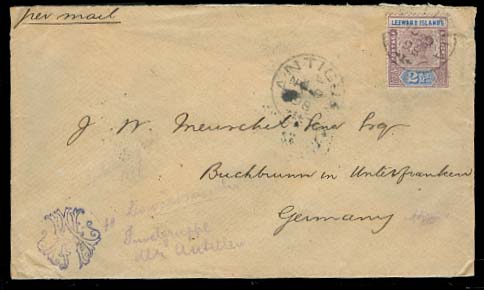 per mail
LEEWARD ISLANDS
2½d
ANTIGUA
J. W. Meuschel Senr Esq
Buchbrunn in Unterfranken
Germany
Inselgruppe
der Antillen